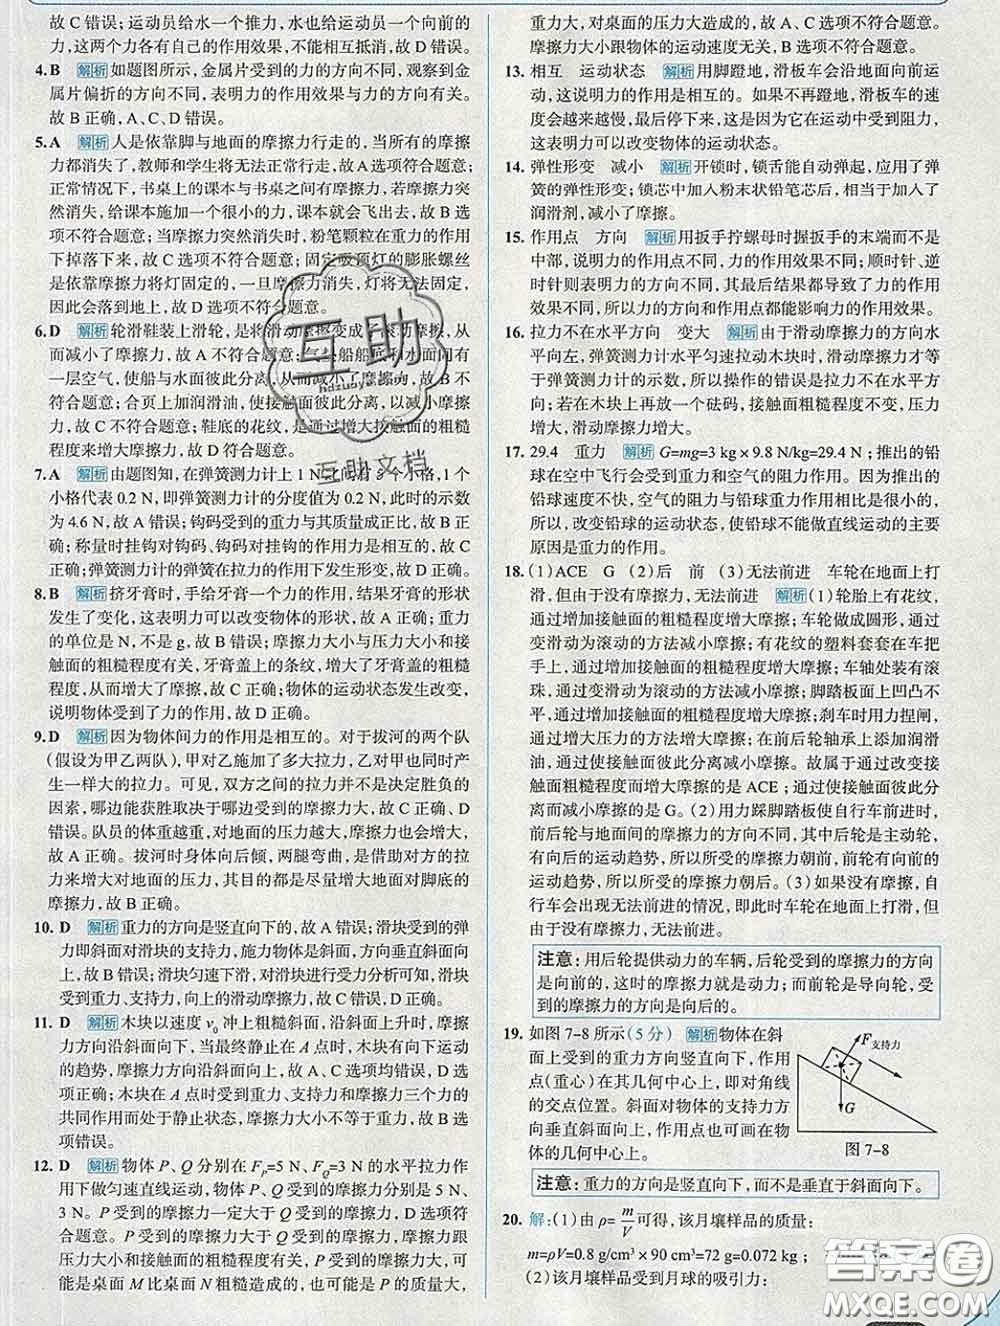 故 C 错误；运动员给水一个推力，水也给运动员一个向前的
力，这两个力各有自己的作用效果，不能相互抵消，故 D 错误。
4. B 解析 如题图所示，金属片受到的力的方向不同，观察到金
属片偏折的方向不同，表明力的作用效果与力的方向有关。
故 B 正确，A、C、D 错误。
5. A 解析 人是依靠脚与地面的摩擦力行走的，当所有的摩擦
力都消失了，教师和学生将无法正常行走，故 A 选项符合题意；
正常情况下，书桌上的课本与书桌之间有摩擦力，若摩擦力突
然消失，给课本施加一个很小的力，课本就会飞出去，故 B 选
项不符合题意；当摩擦力突然消失时，粉笔颗粒在重力的作用
下掉落下来，故 C 选项不符合题意；固定吸顶灯的膨胀螺丝
是依靠摩擦力将灯固定的，一旦摩擦力消失，灯将无法固定，
因此会落到地上，故 D 选项不符合题意。
6. D 解析 轮滑鞋装上滑轮，是将滑动摩擦变成了滚动摩擦，从
而减小了摩擦力，故 A 不符合题意；气垫船船底和水面间有
一层空气，使船与水面彼此分离，从而减小了摩擦力，故 B 不
符合题意；合页上加润滑油，使接触面彼此分离，以减小摩擦
力，故 C 不符合题意；鞋底的花纹，是通过增大接触面的粗糙
程度来增大摩擦力，故 D 符合题意。
7. A 解析 由题图知，在弹簧测力计上 1 N 之间有 5 个小格，1 个
小格代表 0.2 N，即弹簧测力计的分度值为 0.2 N，此时的示数
为 4.6 N，故 A 错误；钩码受到的重力与其质量成正比，故 B 正
确；称量时挂钩对钩码、钩码对挂钩的作用力是相互的，故 C
正确；弹簧测力计的弹簧在拉力的作用下发生形变，故 D 正确。
8. B 解析 挤牙膏时，手给牙膏一个力的作用，结果牙膏的形状
发生了变化，这表明力可以改变物体的形状，故 A 正确；重力
的单位是 N，不是 g，故 B 错误；摩擦力大小与压力大小和接
触面的粗糙程度有关，牙膏盖上的条纹，增大了牙膏盖的粗糙
程度，从而增大了摩擦，故 C 正确；物体的运动状态发生改变，
说明物体受到了力的作用，故 D 正确。
9. D 解析 因为物体间力的作用是相互的。对于拔河的两个队
（假设为甲乙两队），甲对乙施加了多大拉力，乙对甲也同时产
生一样大的拉力。可见，双方之间的拉力并不是决定胜负的
因素，哪边能获胜取决于哪边受到的摩擦力大，故 C 正确、D
错误。队员的体重越重，对地面的压力越大，摩擦力也会增大，
故 A 正确。拔河时身体向后倾，两腿弯曲，是借助对方的拉
力来增大对地面的压力，其目的都是尽量增大地面对脚底的
摩擦力，故 B 正确。
10. D 解析 重力的方向是竖直向下的，故 A 错误；滑块受到的弹
力即斜面对滑块的支持力，施力物体是斜面，方向垂直斜面向
上，故 B、C 错误；滑块匀速下滑，对滑块进行受力分析可知，滑块
受到重力、支持力，向上的滑动摩擦力，故 D 正确。
11. D 解析 木块以速度 v₀ 冲上粗糙斜面，沿斜面上升时，摩擦
力方向沿斜面向下，当最终静止在 A 点时，木块有向下运动
的趋势，摩擦力方向沿斜面向上，故 A、C 选项均错误，D 选项
正确。木块在 A 点时受到重力、支持力和摩擦力三个力的
共同作用而处于静止状态，摩擦力大小不等于重力，故 B 选
项错误。
12. D 解析 物体 P、Q 分别在 Fₚ=5 N、F_Q=3 N 的水平拉力作
用下做匀速直线运动，物体 P、Q 受到的摩擦力分别是 5 N、
3 N。P 受到的摩擦力一定大于 Q 受到的摩擦力，D 选项符
合题意。P 受到的摩擦力大于 Q 受到的摩擦力，摩擦力跟
压力大小和接触面的粗糙程度有关，P 受到的摩擦力大，可
能是桌面 M 比桌面 N 粗糙造成的，也可能是 P 的质量大，
重力大，对桌面的压力大造成的，A、C 选项不符合题意。
摩擦力大小跟物体的运动速度无关，B 选项不符合题意。
13. 相互 运动状态 解析 用脚蹬地，滑板车会沿地面向前运
动，这说明力的作用是相互的。如果不再蹬地，滑板车的速
度会越来越慢，最后停下来，这是因为它在运动中受到阻力，
这表明力可以改变物体的运动状态。
14. 弹性形变 减小 解析 开锁时，锁舌能自动弹起，应用了弹
簧的弹性形变；锁芯中加入粉末状铅笔芯后，相当于加入了
润滑剂，减小了摩擦。
15. 作用点 方向 解析 用扳手拧螺母时握扳手的末端而不是
中部，说明力的作用点不同，力的作用效果不同；顺时针、逆
时针则表示力的方向不同，其最后结果都导致了力的作用
效果不同，所以力的方向和作用点都能影响力的作用效果。
16. 拉力不在水平方向 变大 解析 由于滑动摩擦力的方向水
平向左，弹簧测力计水平匀速拉动木块时，滑动摩擦力才等
于弹簧测力计的示数，所以操作的错误是拉力不在水平方
向；若在木块上再放一个砝码，接触面粗糙程度不变，压力
增大，滑动摩擦力增大。
17. 29.4 重力 解析 G=mg=3 kg×9.8 N/kg=29.4 N；推出的铅
球在空中飞行会受到重力和空气的阻力作用。因为推出的
铅球速度不快，空气的阻力与铅球重力作用相比是很小的，
所以，改变铅球的运动状态，使铅球不能做直线运动的主要
原因是重力的作用。
18. (1)ACE G (2)后 前 (3)无法前进 车轮在地面上打
滑，但由于没有摩擦力，无法前进 解析 (1)轮胎上有花纹，
通过增加接触面的粗糙程度增大摩擦；车轮做成圆形，通过
变滑动为滚动的方法减小摩擦；有花纹的塑料套套在车把
手上，通过增加接触面的粗糙程度增大摩擦；车轴处装有滚
珠，通过变滑动为滚动的方法减小摩擦；脚踏板面上凹凸不
平，通过增加接触面的粗糙程度增大摩擦；刹车时用力捏闸，
通过增大压力的方法增大摩擦；在前后轮轴承上添加润滑
油，通过使接触面彼此分离减小摩擦。故属于通过改变接
触面粗糙程度而增大摩擦的是 ACE；通过使接触面彼此分
离而减小摩擦的是 G。(2)用力踩脚踏板使自行车前进时，
前后轮与地面间的摩擦力的方向不同，其中后轮是主动轮，
有向后的运动趋势，所以所受的摩擦力朝前，前轮有向前的
运动趋势，所以所受的摩擦力朝后。(3)如果没有摩擦，自
行车会出现无法前进的情况，即此时车轮在地面上打滑，但
由于没有摩擦力，无法前进。
注意：用后轮提供动力的车辆，后轮受到的摩擦力的方向
是向前的，这时的摩擦力就是动力；而前轮是导向轮，受
到的摩擦力的方向是向后的。
19. 如图 7-8 所示(5 分) 解析 物体在斜
面上受到的重力方向竖直向下，作用
点（重心）在其几何中心上，即对角线
的交点位置。斜面对物体的支持力方
向垂直斜面向上，作用点也可画在物
体的几何中心上。
F支持力
G
图 7-8
注意：重力的方向是竖直向下，而不是垂直于斜面向下。
20. 解：(1)由 ρ=m/V 可得，该月壤样品的质量：
m=ρV=0.8 g/cm³×90 cm³=72 g=0.072 kg；
(2)该月壤样品受到月球的吸引力：
互助
互助文档
答案圈
MXQE.COM